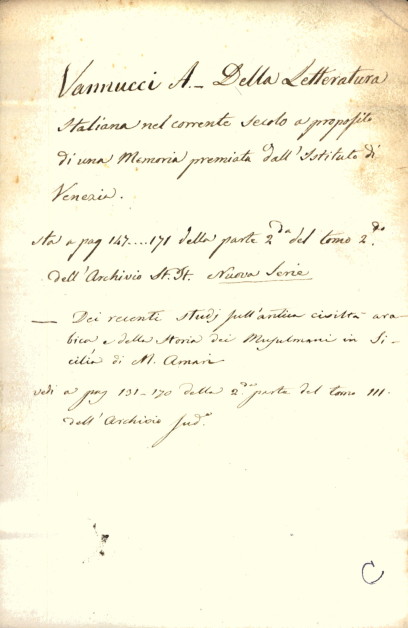 Vannucci A. – Della Letteratura
Italiana nel corrente secolo a proposito
di una Memoria premiata dall'Istituto di
Venezia.
sta a pag 147....171 della parte 2da del tomo 2do
dell'Archivio St. It. Nuova Serie
— Dei recente studj sull'antica civiltà ara-
bica e della Storia dei Musulmani in Si-
cilia di M. Amari
vedi a pag 131–170 della 2da parte del tomo III.
dell'Archivio sudo
C